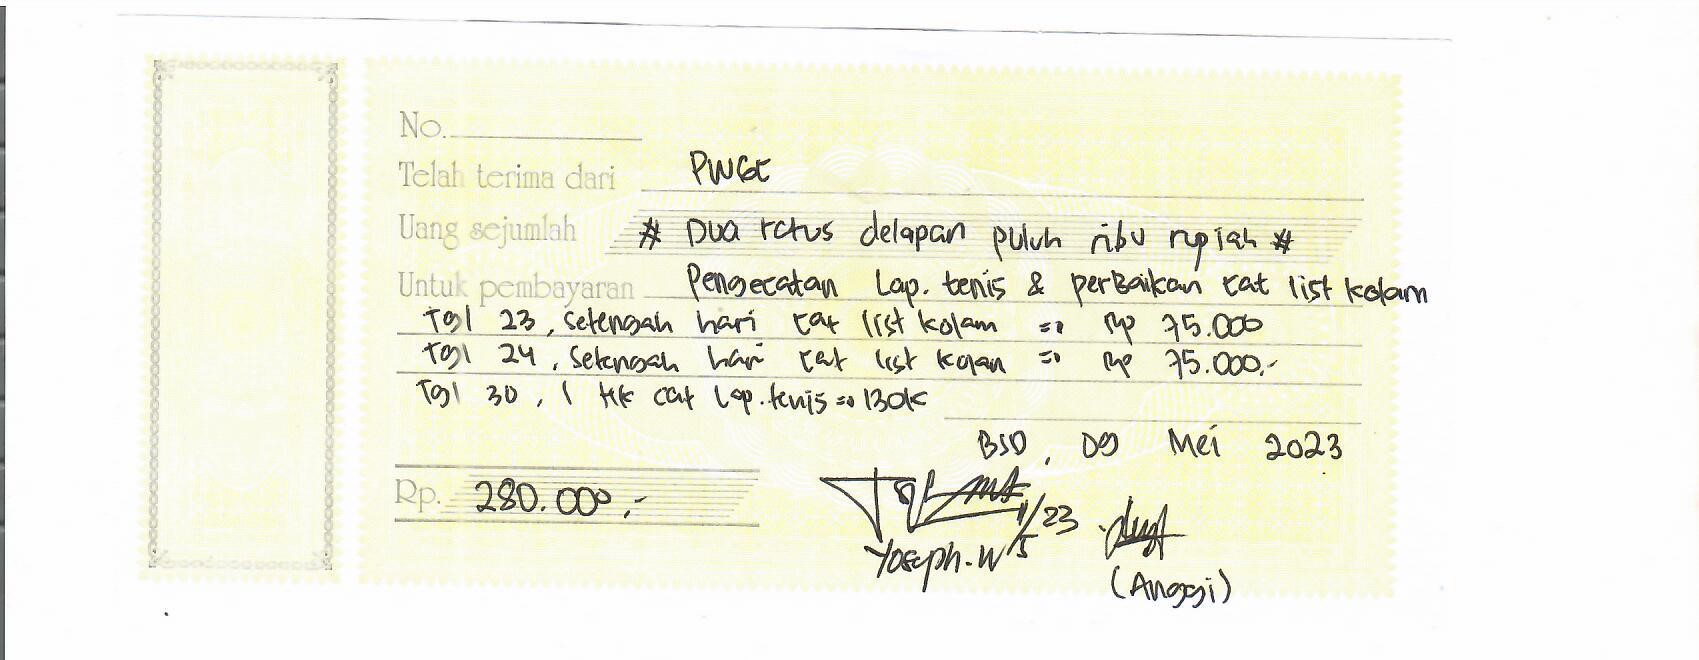 No.
Telah terima dari PWGC
Uang sejumlah # Dua ratus delapan puluh ribu rupiah #
Untuk pembayaran Pengecatan Lap. tenis & perbaikan cat list kolam
Tgl 23, setengah hari cat list kolam => Rp 75.000
Tgl 24, setengah hari cat list kolam => Rp 75.000,-
Tgl 30, 1 HK cat Lap. tenis => 130K
BSD, 09 Mei 2023
Rp. 280.000,-
1/5 23
Yoseph.W
(Anggi)